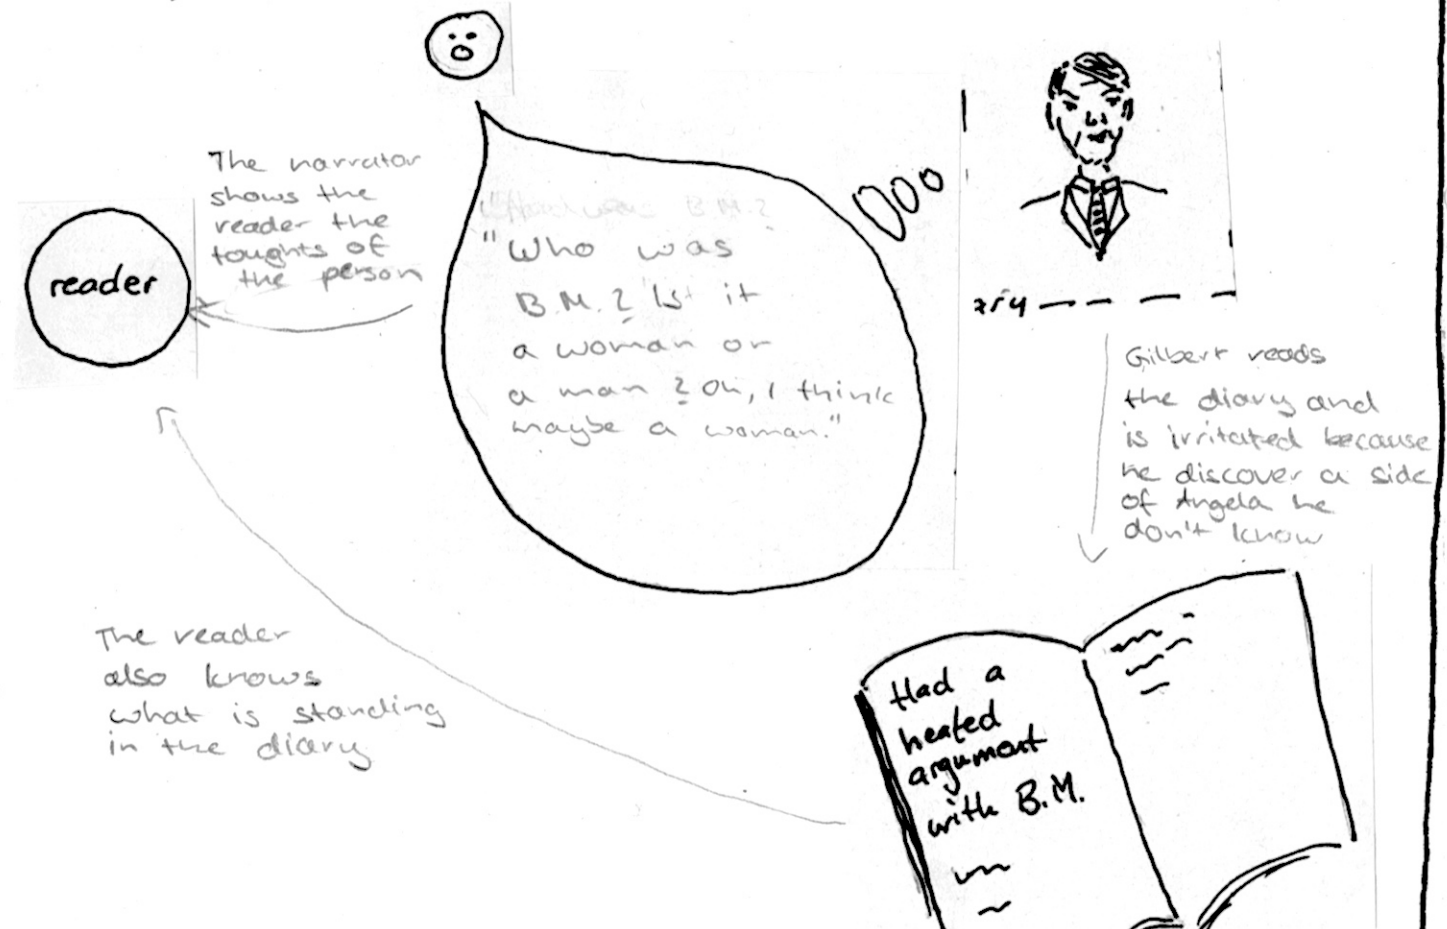 The narrator
shows the
reader the
toughts of
the person
reader
"Who was
B.M.? Is it
a woman or
a man? Oh, I think
maybe a woman."
Gilbert reads
the diary and
is irritated because
he discover a side
of Angela he
don't know
The reader
also knows
what is standing
in the diary
Had a
heated
argument
with B.M.